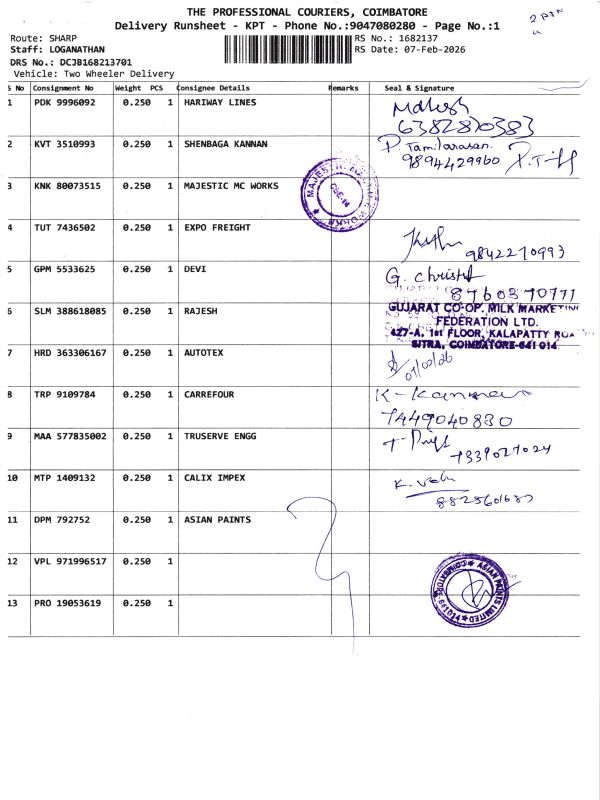 THE PROFESSIONAL COURIERS, COIMBATORE
Delivery Runsheet - KPT - Phone No.:9047080280 - Page No.:1
Route: SHARP
RS No.: 1682137
Staff: LOGANATHAN
RS Date: 07-Feb-2026
DRS No.: DCJB168213701
Vehicle: Two Wheeler Delivery
S No Consignment No Weight PCS Consignee Details Remarks Seal & Signature
1 PDK 9996092 0.250 1 HARIWAY LINES
6382810383
2 KVT 3510993 0.250 1 SHENBAGA KANNAN P. Tamilarasan.
9894429960
3 KNK 80073515 0.250 1 MAJESTIC MC WORKS
4 TUT 7436502 0.250 1 EXPO FREIGHT
9842270993
5 GPM 5533625 0.250 1 DEVI
8760370771
6 SLM 388618085 0.250 1 RAJESH
GUJARAT CO-OP. MILK MARKETING
FEDERATION LTD.
427-A, 1st FLOOR, KALAPATTY ROA
SITRA, COIMBATORE-641 014
7 HRD 363306167 0.250 1 AUTOTEX
8 TRP 9109784 0.250 1 CARREFOUR
7449040830
9 MAA 577835002 0.250 1 TRUSERVE ENGG
10 MTP 1409132 0.250 1 CALIX IMPEX
11 DPM 792752 0.250 1 ASIAN PAINTS
12 VPL 971996517 0.250 1
ASIAN PAINTS LIMITED
13 PRO 19053619 0.250 1